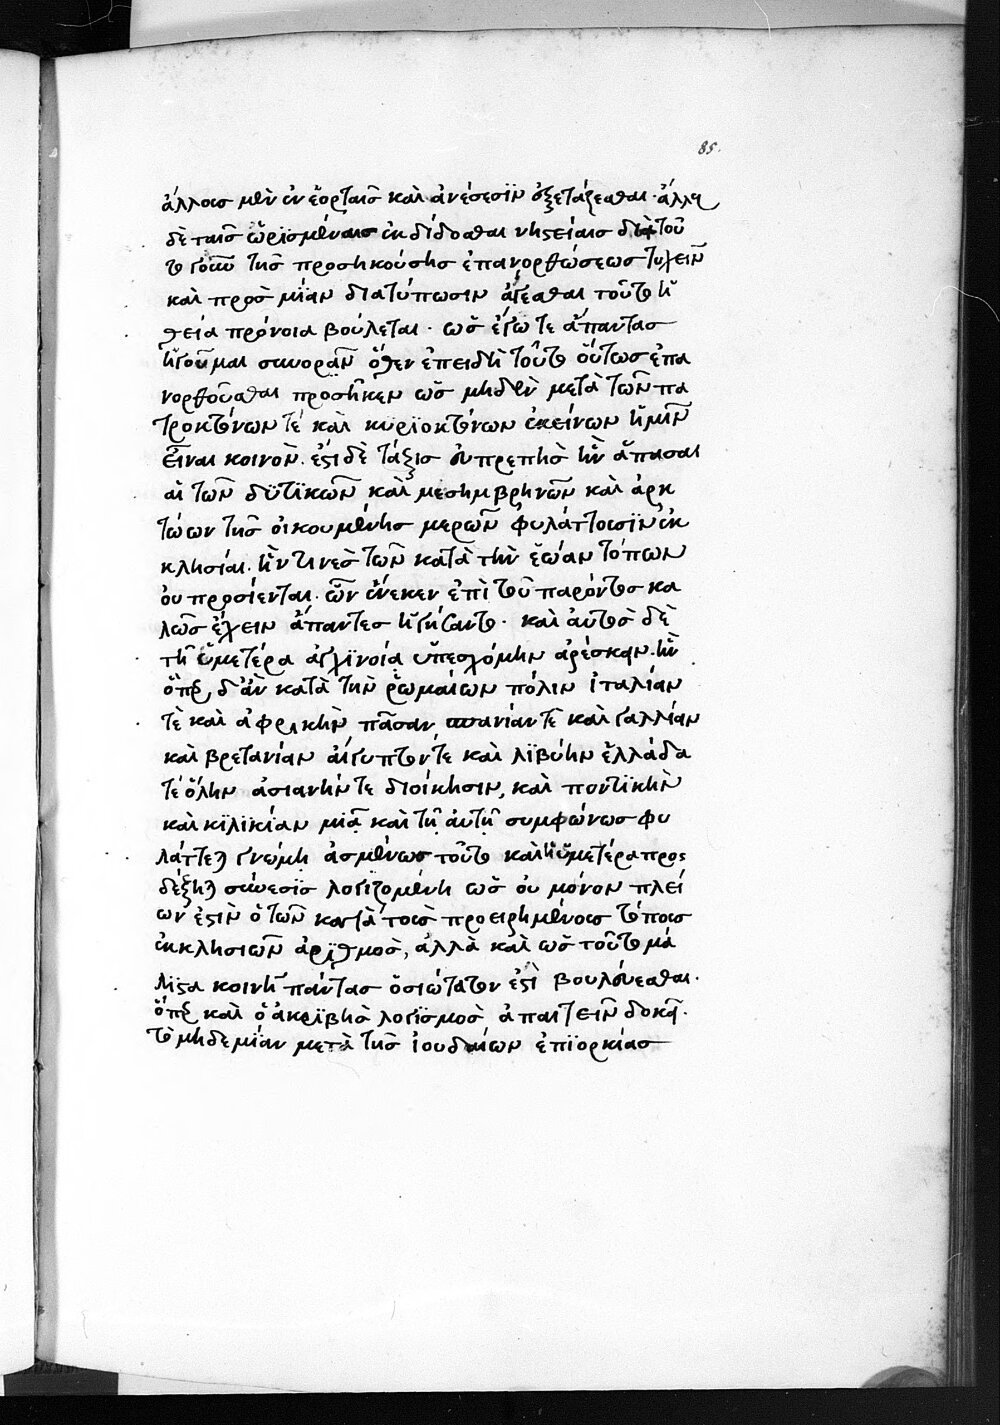 85.
ἄλλους μὲν ἐν ἑορταῖς καὶ ἀνέσεσϊν ἐξετάζεσθαι· ἄλλους
δὲ ταῖς ὡρϊσμέναις ἐκδίδοσθαι νηστείαις διὰ τοῦ
το γοῦν τῆς προσηκούσης ἐπανορθώσεως τυχεῖν
καὶ πρὸς μΐαν διατύπωσιν ἄγεσθαι τοῦτο ἡ
θεία πρόνοια βούλεται· ὡς ἔγωγε ἅπαντας
ἡγοῦμαι συνορᾶν ὅθεν ἐπειδὴ τοῦτο οὕτως ἐπα
νορθοῦσθαι προσῆκεν ὡς μηδὲν μετὰ τῶν πα
τροκτόνων τέ καὶ κυρϊοκτόνων ἐκείνων ἡμῖν
εἶναι κοινὸν. ἔστι δὲ τάξις εὐπρεπὴς ἣν ἅπασαι
αἱ τῶν δϋτϊκῶν καὶ μεσημβρηνῶν καὶ ἀρκ
τώων τῆς οἰκουμένης μερῶν φυλάττουσϊν ἐκ
κλησίαι. ἥν τινες τῶν κατὰ τὴν ἑώαν τόπων
οὐ προσίενται. ὧν ἕνεκεν ἐπὶ τοῦ παρόντος κα
λῶς ἔχειν ἅπαντες ἡγήσαντο· καὶ αὐτὸς δὲ
τῆ ὑμετέρα ἀγχϊνοία ὑπεσχόμην ἀρέσκειν. ἣν
ὅπερ δ᾽ἂν κατὰ τὴν ῥωμαίων πόλιν ἰταλίαν
τὲ καὶ ἀφρικὴν πᾶσαν, σπανίαν τὲ καὶ γαλλίαν
καὶ βρετανίαν αἴγυπτόν τε καὶ λϊβύην ἑλλάδα
τέ ὅλην ἀσιανήν τε διοίκησιν, καὶ ποντϊκὴν
καὶ κϊλικίαν μιᾷ καὶ τῇ αὐτῇ συμφώνως φυ
λάττεται γνώμῃ ἀσμένως τοῦτο καὶ ἡ ὑμετέρα προς
δέξηται σύνεσϊς λογιζομένη ὡς οὐ μόνον πλεί
ων ἐστὶν ὁ τῶν κατὰ τοὺς προειρημένους τόπους
ἐκκλησιῶν ἀρϊθμὸς, ἀλλὰ καὶ ὡς τοῦτο μά
λιστα κοινῆ πάντας ὁσιώτατόν ἐστὶ βουλόνεσθαι.
ὅπερ καὶ ὁ ἀκρϊβὴς λογϊσμὸς ἀπαιτεῖν δοκεῖ.
τὸ μηδεμΐαν μετὰ τῆς ἰουδαίων ἐπϊορκίας